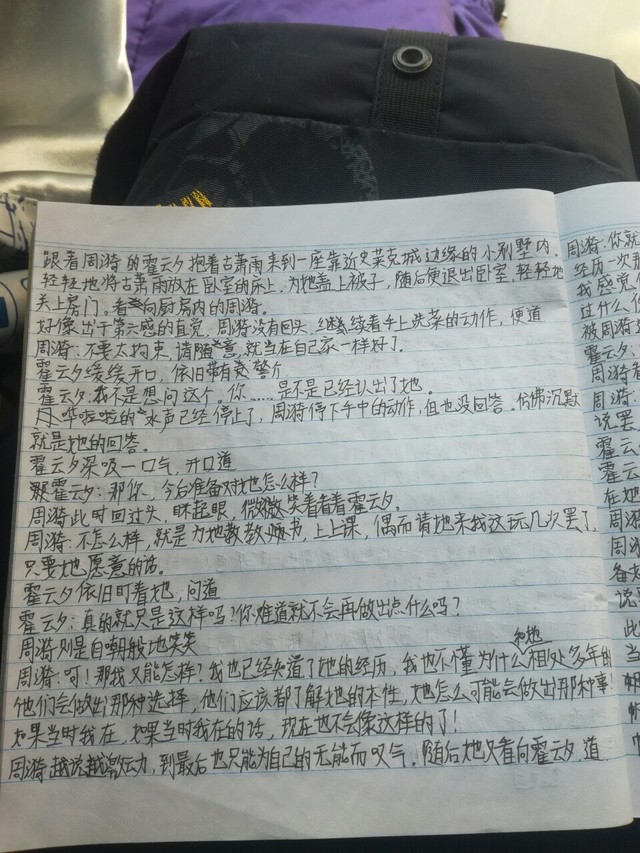 跟着周漪的霍云夕抱着古萧雨来到一座靠近史莱克城边缘的小别墅内。
轻轻地将古萧雨放在卧室的床上，为她盖上被子，随后便退出卧室，轻轻地
关上房门。看向厨房内的周漪。
好像出于第六感的直觉，周漪没有回头，继续着手上洗菜的动作，便道
周漪：不要太拘束，请随意，就当在自己家一样好了。
霍云夕缓缓开口，依旧带有警个
霍云夕：我不是想问这个。你……是不是已经认出了她。
哗啦啦的水声已经停止了，周漪停下手中的动作，但也没回答。仿佛沉默
就是她的回答。
霍云夕深吸一口气，开口道
霍云夕：那你，今后准备对她怎么样？
周漪此时回过头，眯起眼，微微笑着看着霍云夕。
周漪：不怎么样，就是为她教教书，上上课，偶而请她来我这玩几次罢了，
只要她愿意的话。
霍云夕依旧盯着她，问道
霍云夕：真的就只是这样吗？你难道就不会再做出点什么吗？
周漪则是自嘲般地笑笑
周漪：呵！那我又能怎样？我也已经知道了她的经历，我也不懂为什么和她相处多年的
他们会做出那种选择，他们应该都了解她的本性，她怎么可能会做出那种事！
如果当时我在，如果当时我在的话，现在也不会像这样的了！
周漪越说越激动，到最后也只能为自己的无能而叹气。随后她又看向霍云夕，道
周漪：你就
经历一次那
我感觉
过什么
被周漪
霍云夕
周漪看
周漪：
说罢
霍云
霍云
在她
周漪
周漪
备
说
此
当